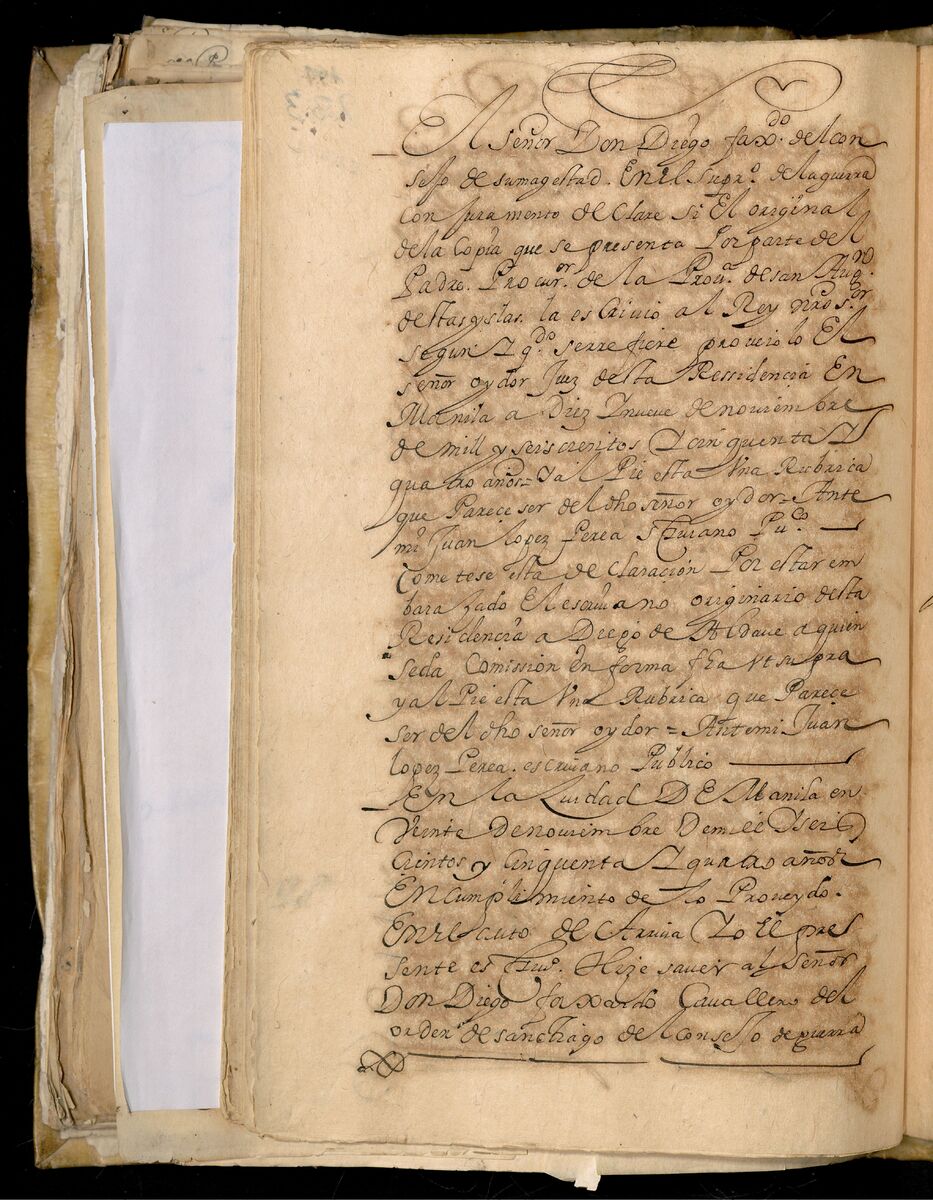 El señor Don Diego faxdo. del con
sejo de su magestad. En el Supro. de la guerra
con juramento de clare si El original
de la Copia que se presenta Por parte del
Padre. Procuror. de la Prova. de san Augn.
destas yslas. la escrivio al Rey nro sor.
segun y qdo. se rre fiere proveiolo El
señor oydor Juez desta Ressidencia En
Manila a Diez y nueve de noviembre
de mill y seiscientos y cinquenta y
quatro años = y al Pie esta Una Rubrica
que Parece ser del dho señor oydor = Ante
mi Juan lopez Perea scrivano Puco.
Cometese esta de claracion Por estar em
barazado El escrivano originario desta
Residencia a Diego de Aldave a quien
se da Comission en forma fha Ut supra
y al Pie esta Una Rubrica que Parece
ser del dho señor oydor = Antemi Juan
lopez Perea. escrivano Publico
En la ciudad DE Manila en
Veinte de noviembre De mill y seis
cientos y cinquenta y quatro años
En cumplimiento de lo Proveydo.
En el auto de Arriva Yo el pre
sente esrivo. Hize saver al señor
Don Diego faxardo Cavallero del
orden de sanctiago del Consejo de guerra